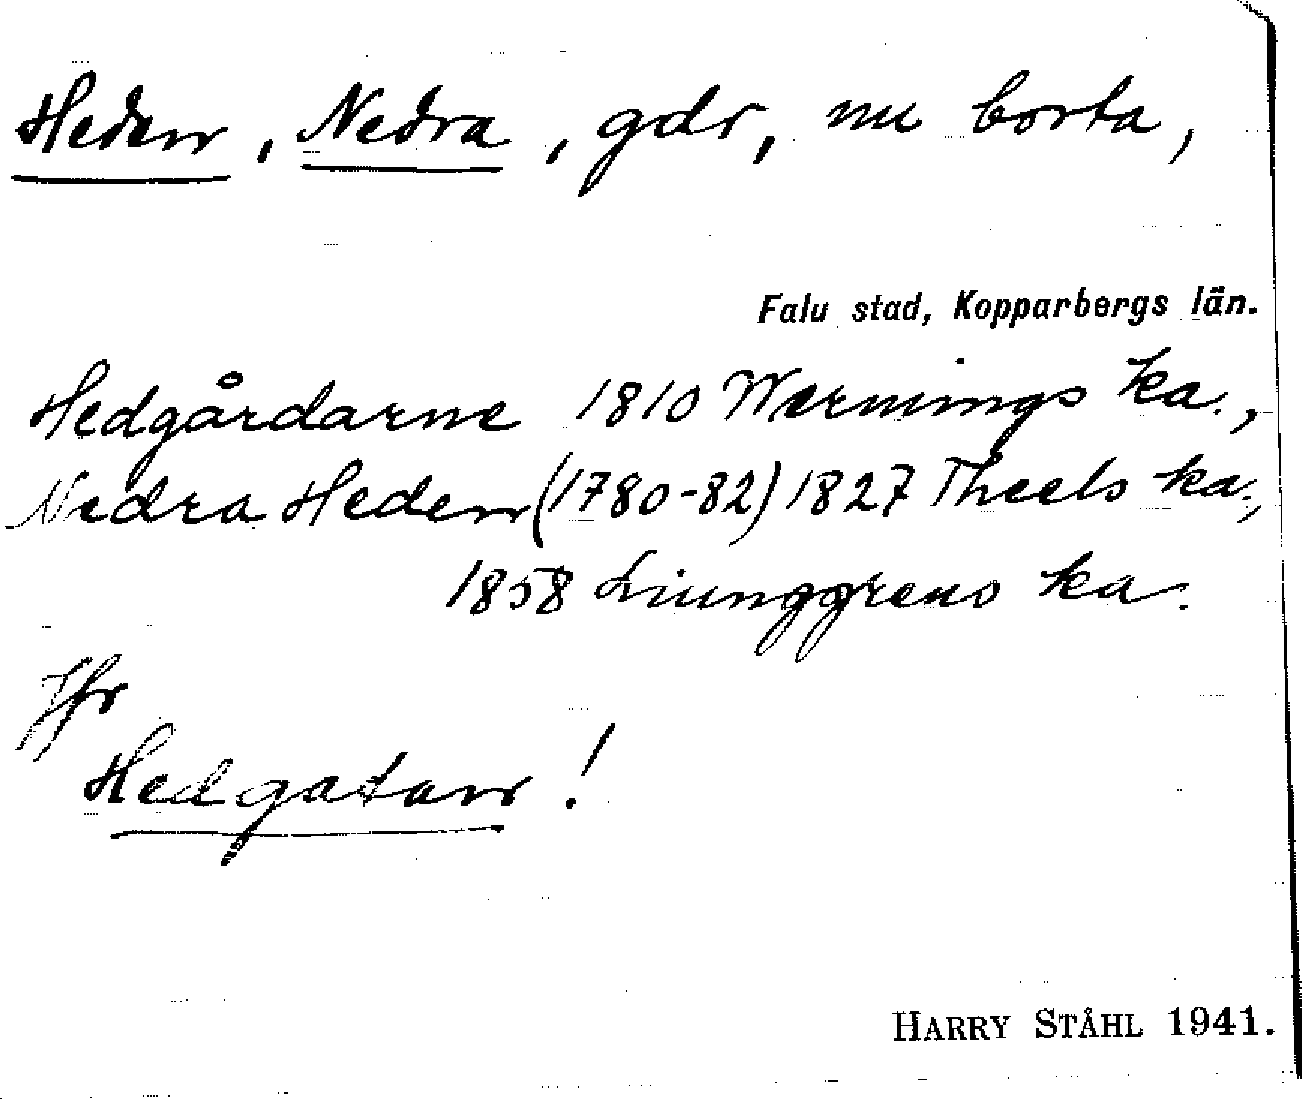 Heden, Nedra, gdr, nu borta,
Falu stad, Kopparbergs län.
Hedgårdarne 1810 Wærnings ka.,
Nedra Heden (1780-82) 1827 Theels ka.,
1858 Liunggrens ka.
Jfr
Hedgatan!
HARRY STÅHL 1941.